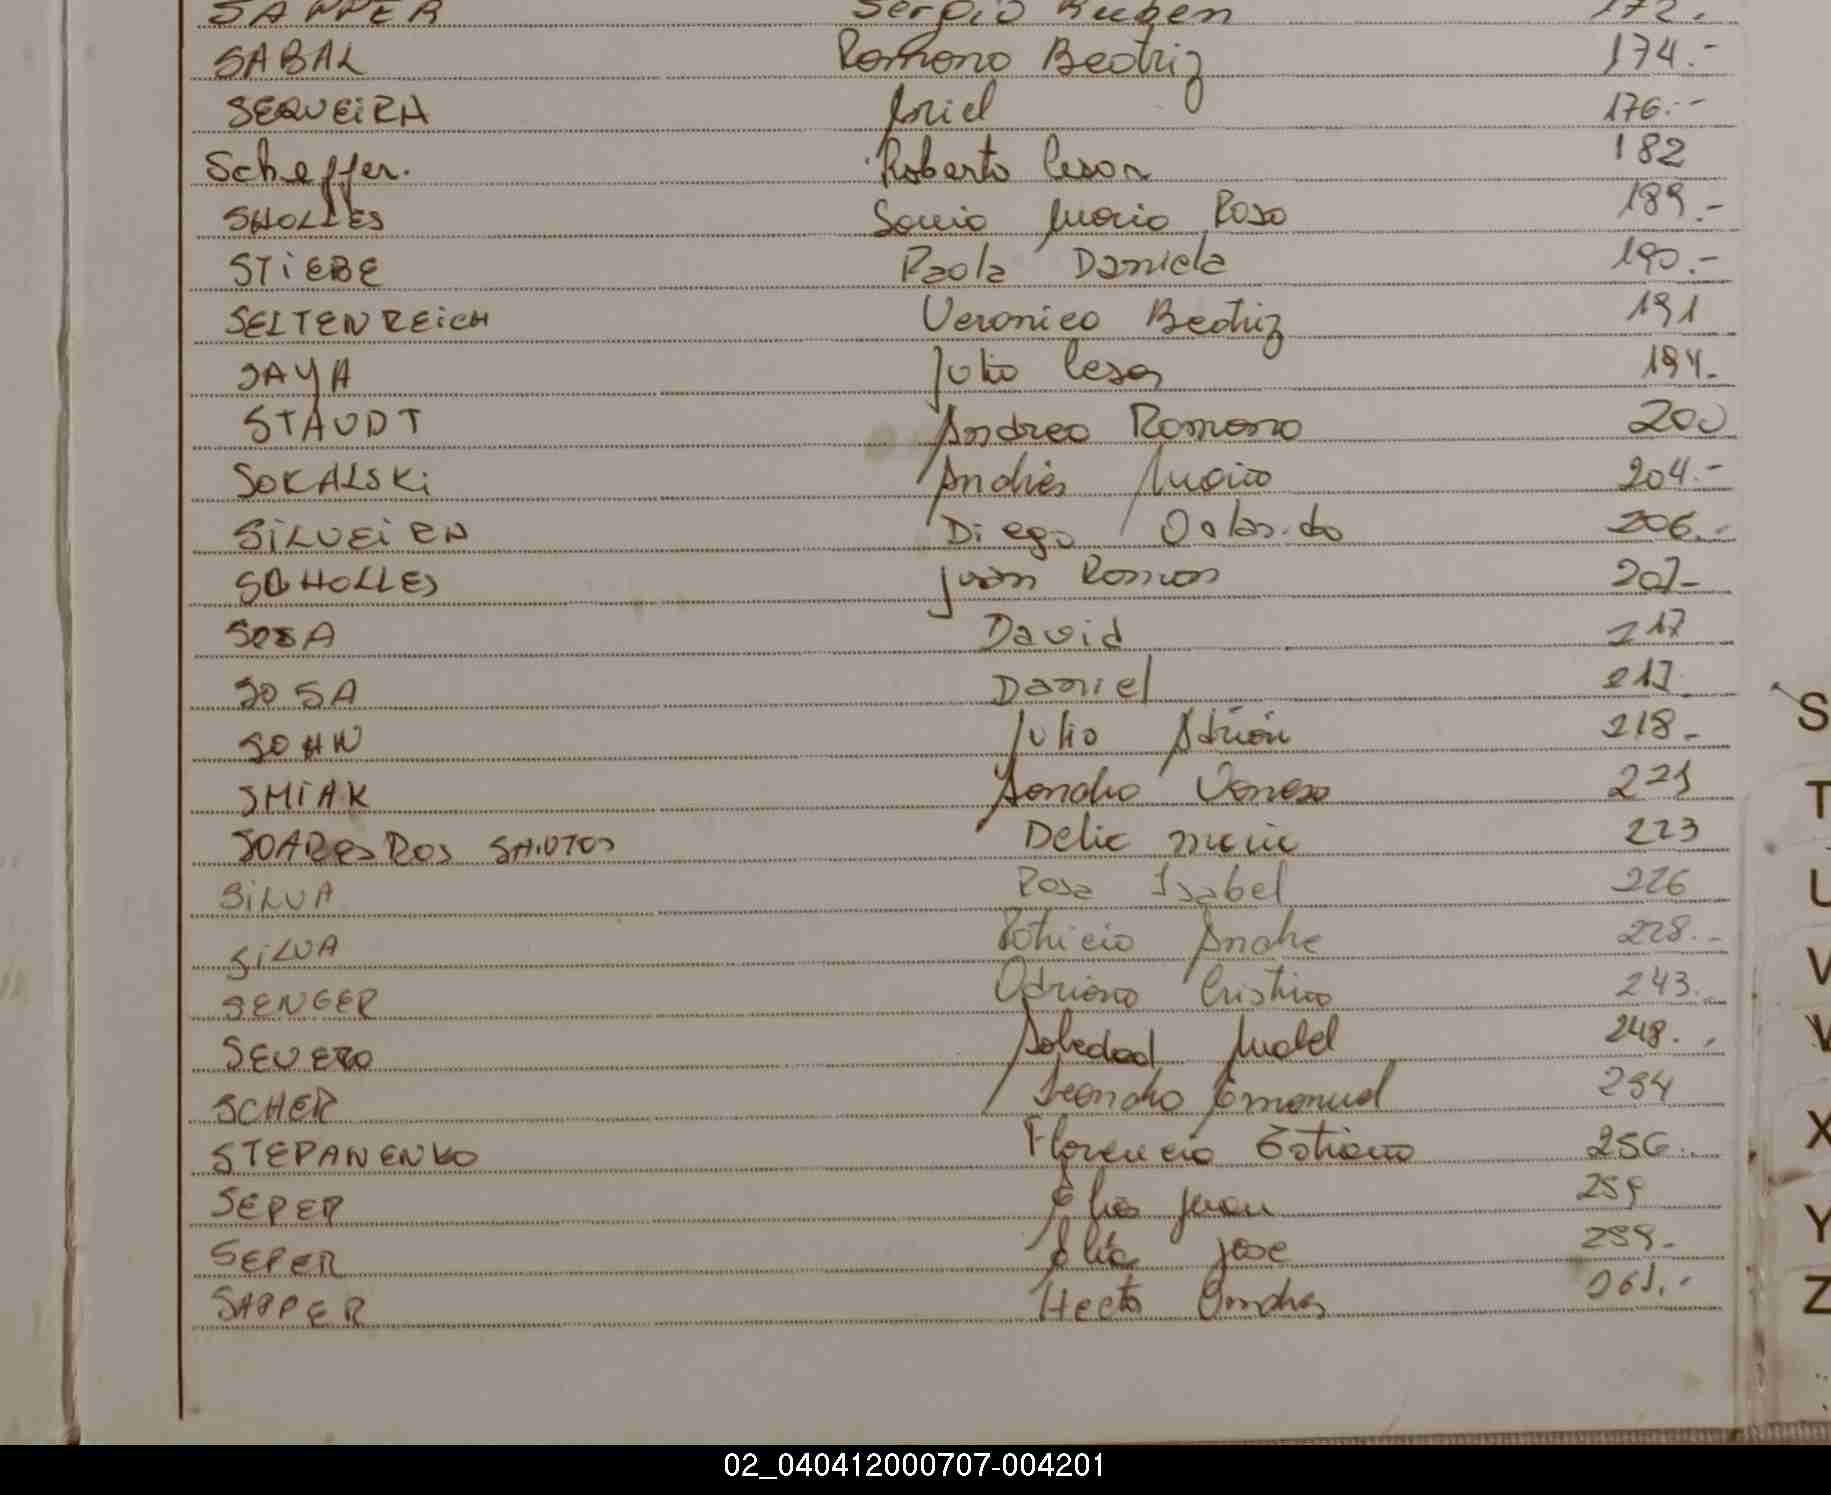 SAPPER Sergio Ruben 172.
SABAL Romona Beatriz 174.-
SEQUEIRA Ariel 176.-
Scheffer. Roberto Cesar 182
SHOLLES Sonia Maria Rosa 189.-
STIEBE Paola Daniela 190.-
SELTENREICH Veronica Beatriz 191
SAYA Julio Cesar 194.
STAUDT Andrea Romona 200
SOKALSKi Andrés Mario 204.-
SiLVEiRA Diego Orlando 206.-
SCHOLLES Juan Ramon 207-
SOSA David 217
SOSA Daniel 217
SOHN Julio Adrián 218-
SMIAK Sandra Vanesa 221
SOARES DOS SANTOS Delia Maria 223
SiLVA Rosa Isabel 226
SiLVA Patricia Andre 228.-
SENGER Adriana Cristina 243.
SEVERO Soledad Mabel 248.
SCHER Leandro Emanuel 254
STEPANENKO Florencia Estiana 256.
SEPER Elias Juan 259
SEPER Elia Jose 259-
SAPPER Hector Andres 261.-
S
T
U
V
X
Y
Z
02_040412000707-004201